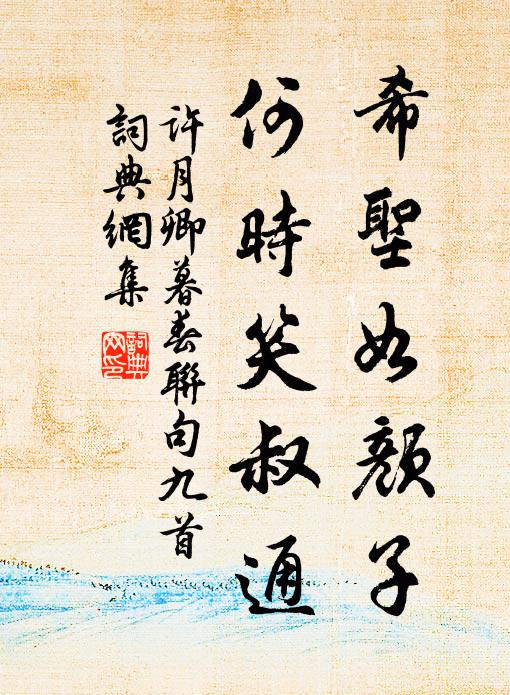 希聖如顏子
何時笑叔通
許月卿暮春聯句九首
詞典網集
詞典
網印